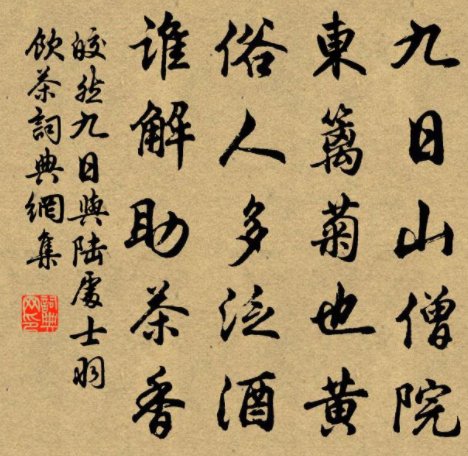 九日山僧院
東籬菊也黄
俗人多泛酒
誰解助茶香
皎然九日與陸處士羽
飲茶詞典網集
詞典
网印